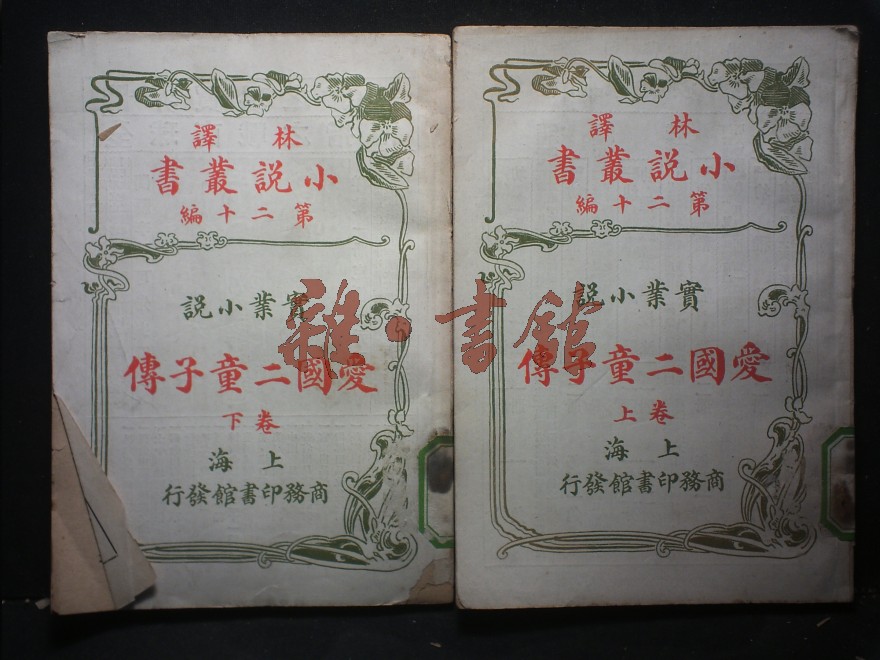 林譯
小說叢書
第二十編
實業小說
愛國二童子傳
卷下
上海
商務印書館發行
林譯
小說叢書
第二十編
實業小說
愛國二童子傳
卷上
上海
商務印書館發行
雜·書館